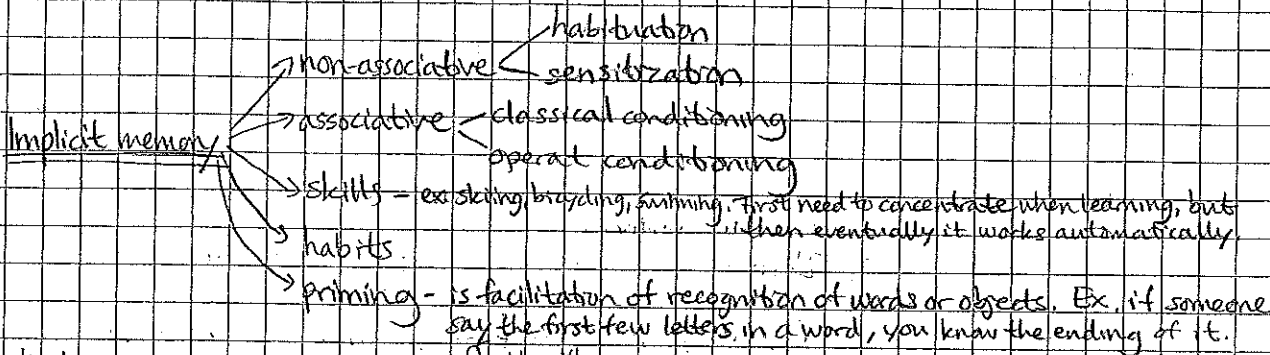 habituation
non-associative
sensitization
associative - classical conditioning
Implicit memory
operat conditioning
skills - ex skiing, bicycling, swimming. First need to concentrate when learning, but
then eventually it works automatically.
habits
priming - is facilitation of recognition of words or objects. Ex. if someone
say the first few letters in a word, you know the ending of it.